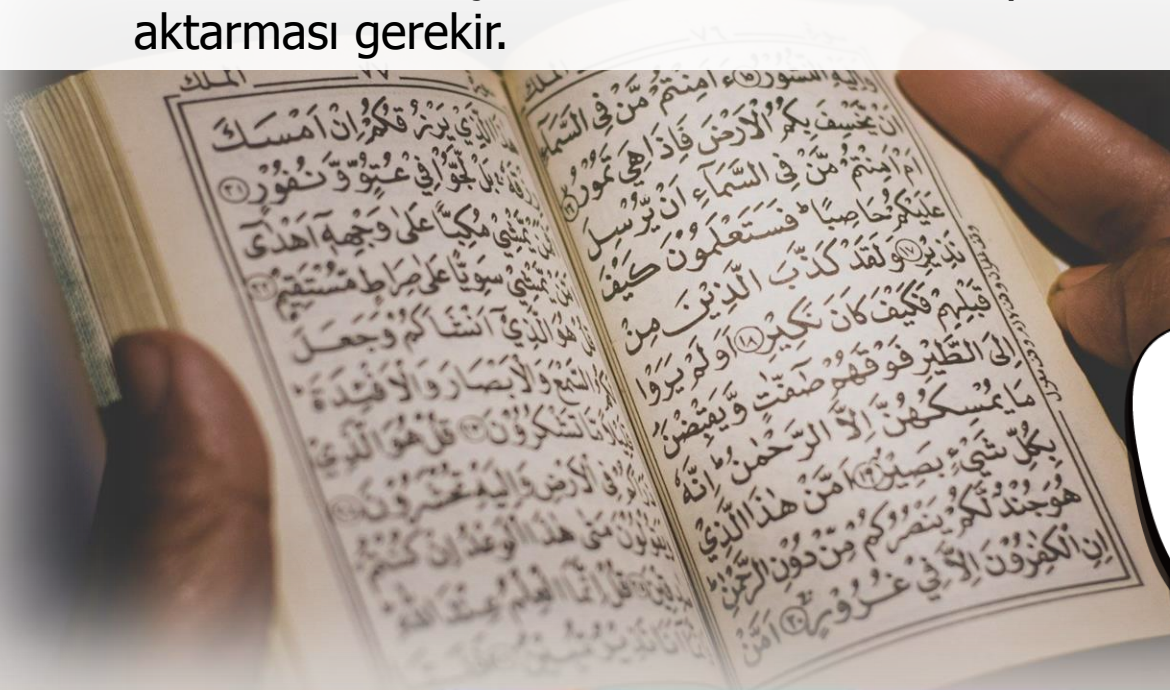 aktarması gerekir.
الملك
النُّشُوْرُ ءَاَمِنْتُمْ مَّنْ فِى السَّمَآءِ
اَنْ يَّخْسِفَ بِكُمُ الْاَرْضَ فَاِذَا هِيَ تَمُوْرُ
اَمْ اَمِنْتُمْ مَّنْ فِى السَّمَآءِ اَنْ يُّرْسِلَ
عَلَيْكُمْ حَاصِبًا ؕ فَسَتَعْلَمُوْنَ كَيْفَ
نَذِيْرِ ﴿١٧﴾ وَلَقَدْ كَذَّبَ الَّذِيْنَ مِنْ
قَبْلِهِمْ فَكَيْفَ كَانَ نَكِيْرِ ﴿١٨﴾ اَوَلَمْ يَرَوْا
اِلَى الطَّيْرِ فَوْقَهُمْ صٰٓفّٰتٍ وَّيَقْبِضْنَ
مَا يُمْسِكُهُنَّ اِلَّا الرَّحْمٰنُ ؕ اِنَّهٗ
بِكُلِّ شَيْءٍ بَصِيْرٌ ﴿١٩﴾ اَمَّنْ هٰذَا الَّذِيْ
هُوَ جُنْدٌ لَّكُمْ يَنْصُرُكُمْ مِّنْ دُوْنِ الرَّحْمٰنِ ؕ
اِنِ الْكٰفِرُوْنَ اِلَّا فِيْ غُرُوْرٍ ﴿٢٠﴾ اَمَّنْ
الملك ٦٧
الَّذِيْ يَرْزُقُكُمْ اِنْ اَمْسَكَ
بَلْ لَّجُّوْا فِيْ عُتُوٍّ وَّنُفُوْرٍ ﴿٢١﴾
يَّمْشِيْ مُكِبًّا عَلٰى وَجْهِهٖٓ اَهْدٰٓى
يَّمْشِيْ سَوِيًّا عَلٰى صِرَاطٍ مُّسْتَقِيْمٍ ﴿٢٢﴾
هُوَ الَّذِيْٓ اَنْشَاَكُمْ وَجَعَلَ
السَّمْعَ وَالْاَبْصَارَ وَالْاَفْئِدَةَ
مَّا تَشْكُرُوْنَ ﴿٢٣﴾ قُلْ هُوَ الَّذِيْ
فِى الْاَرْضِ وَاِلَيْهِ تُحْشَرُوْنَ
يَقُوْلُوْنَ مَتٰى هٰذَا الْوَعْدُ اِنْ كُنْتُمْ
قُلْ اِنَّمَا الْعِلْمُ عِنْدَ اللّٰهِ
اَنَا نَذِيْرٌ مُّبِيْنٌ